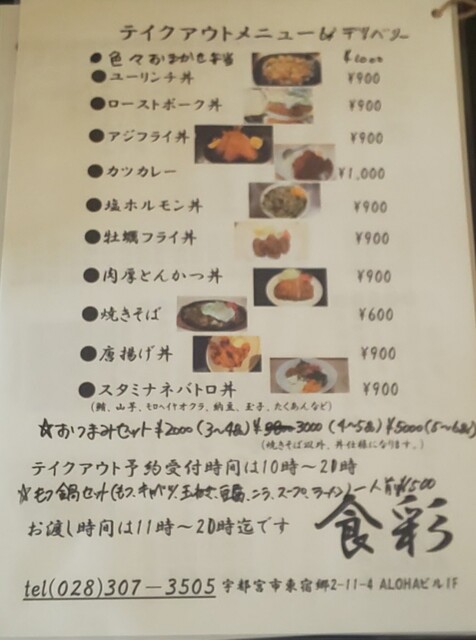 テイクアウトメニュー & デリバリー
● 色々おまかせ弁当 ¥1000
● ユーリンチ丼 ¥900
● ローストポーク丼 ¥900
● アジフライ丼 ¥900
● カツカレー ¥1,000
● 塩ホルモン丼 ¥900
● 牡蠣フライ丼 ¥900
● 肉厚とんかつ丼 ¥900
● 焼きそば ¥600
● 唐揚げ丼 ¥900
● スタミナネバトロ丼 ¥900
(鮪、山芋、モロヘイヤオクラ、納豆、玉子、たくあんなど)
☆おつまみセット¥2000(3〜4品)¥3000(4〜5品)¥5000(5〜6品)
(焼きそば以外、丼仕様になります。)
テイクアウト予約受付時間は10時〜20時
☆もつ鍋セット(もつ、キャベツ、玉ねぎ、豆腐、ニラ、スープ、ラーメン)一人前¥1500
お渡し時間は11時〜20時迄です
食彩
tel(028)307−3505 宇都宮市東宿郷2-11-4 ALOHAビル1F